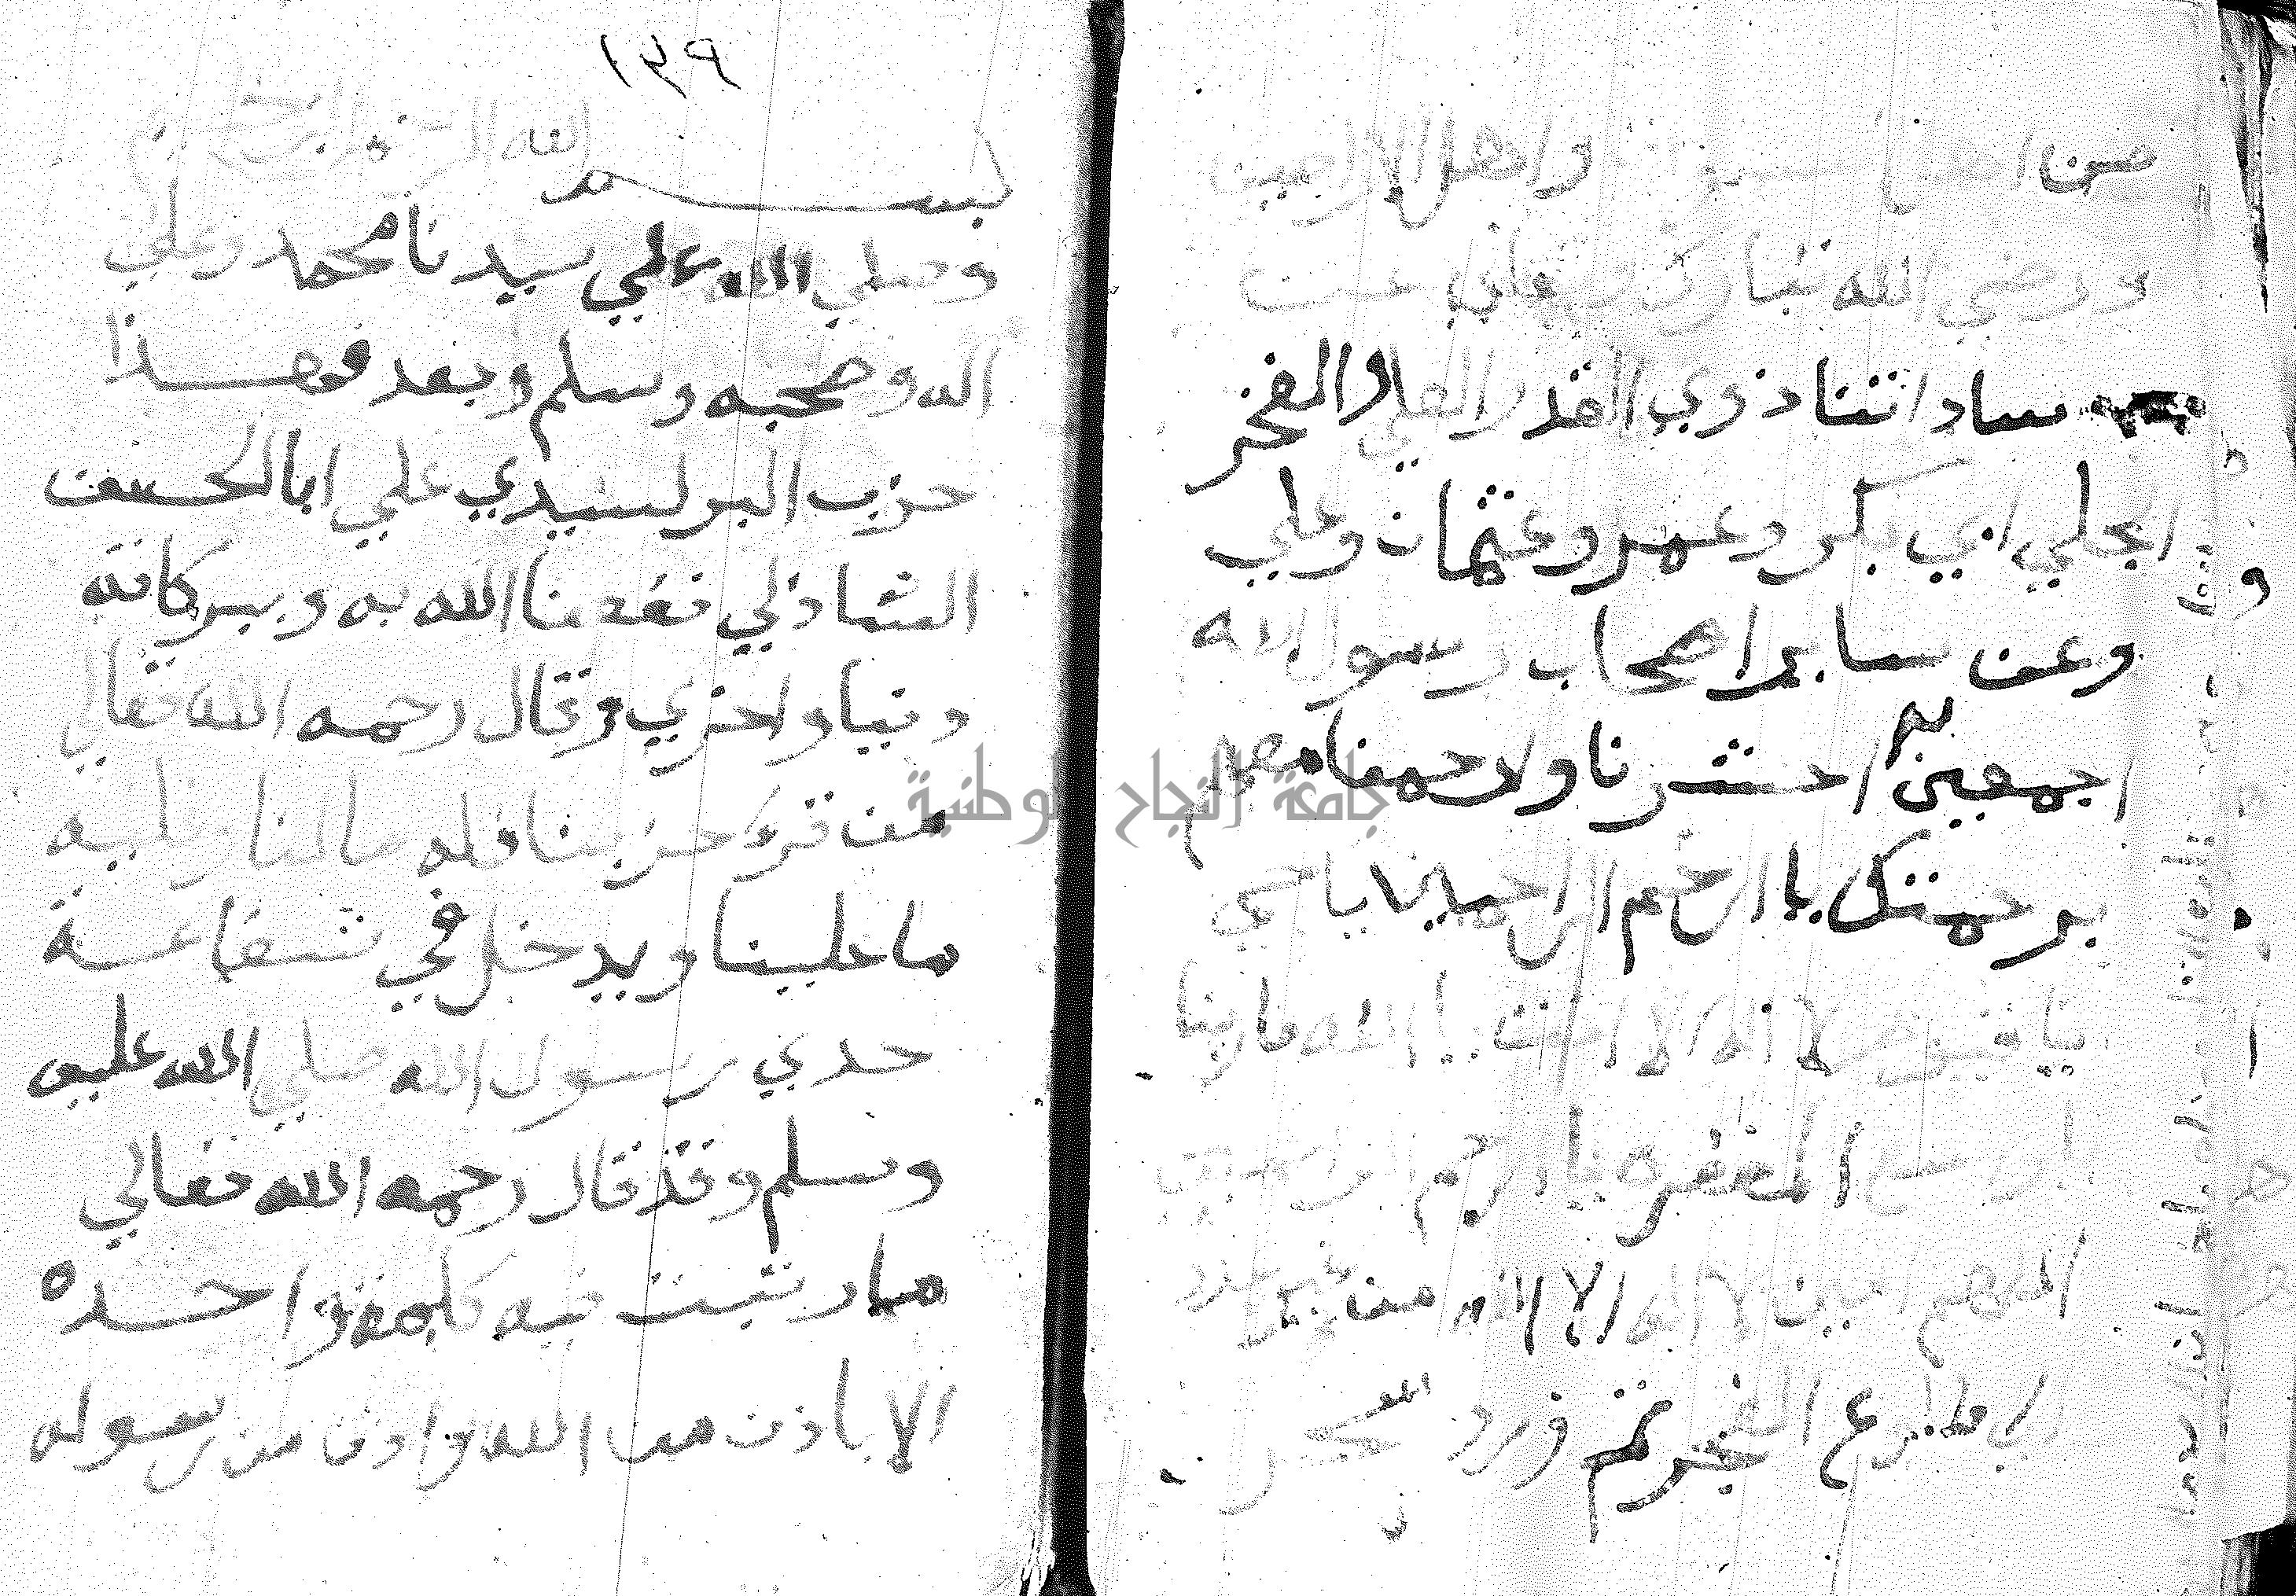 من اهل واهل الارضين
ورضي الله تبارك وتعالي عن
ساداتنا ذوي القدر العلي والفخر
الجلي ابي بكر وعمر وعثمان وعلي
وعن ساير اصحاب رسول الله
اجمعين احشرنا وارحمنا معهم
برحمتك يا ارحم الراحمين يا حي
يا قيوم لا اله الا انت يا الله يا ربنا
يا واسع المغفره يا ارحم الراحمين
اللهم امين لا اله الا الله من
الي طلوع الفجر تم ورد السحر
١٤٩
بسم الله الرحمن الرحيم
وصلي الله علي سيدنا محمد وعلي
اله وصحبه وسلم وبعد فهذا
حزب البر لسيدي علي ابا الحسن
الشاذلي نفعنا الله به وببركاته
دنيا واخري وقال رحمه الله تعالي
من قرء حزبنا فله ما لنا وعليه
ما علينا ويدخل في شفاعة
جدي رسول الله صلي الله عليه
وسلم وقد قال رحمه الله تعالي
ما رتبت فيه كلمة واحده
الا باذن من الله واذن من رسوله
جامعة النجاح الوطنية